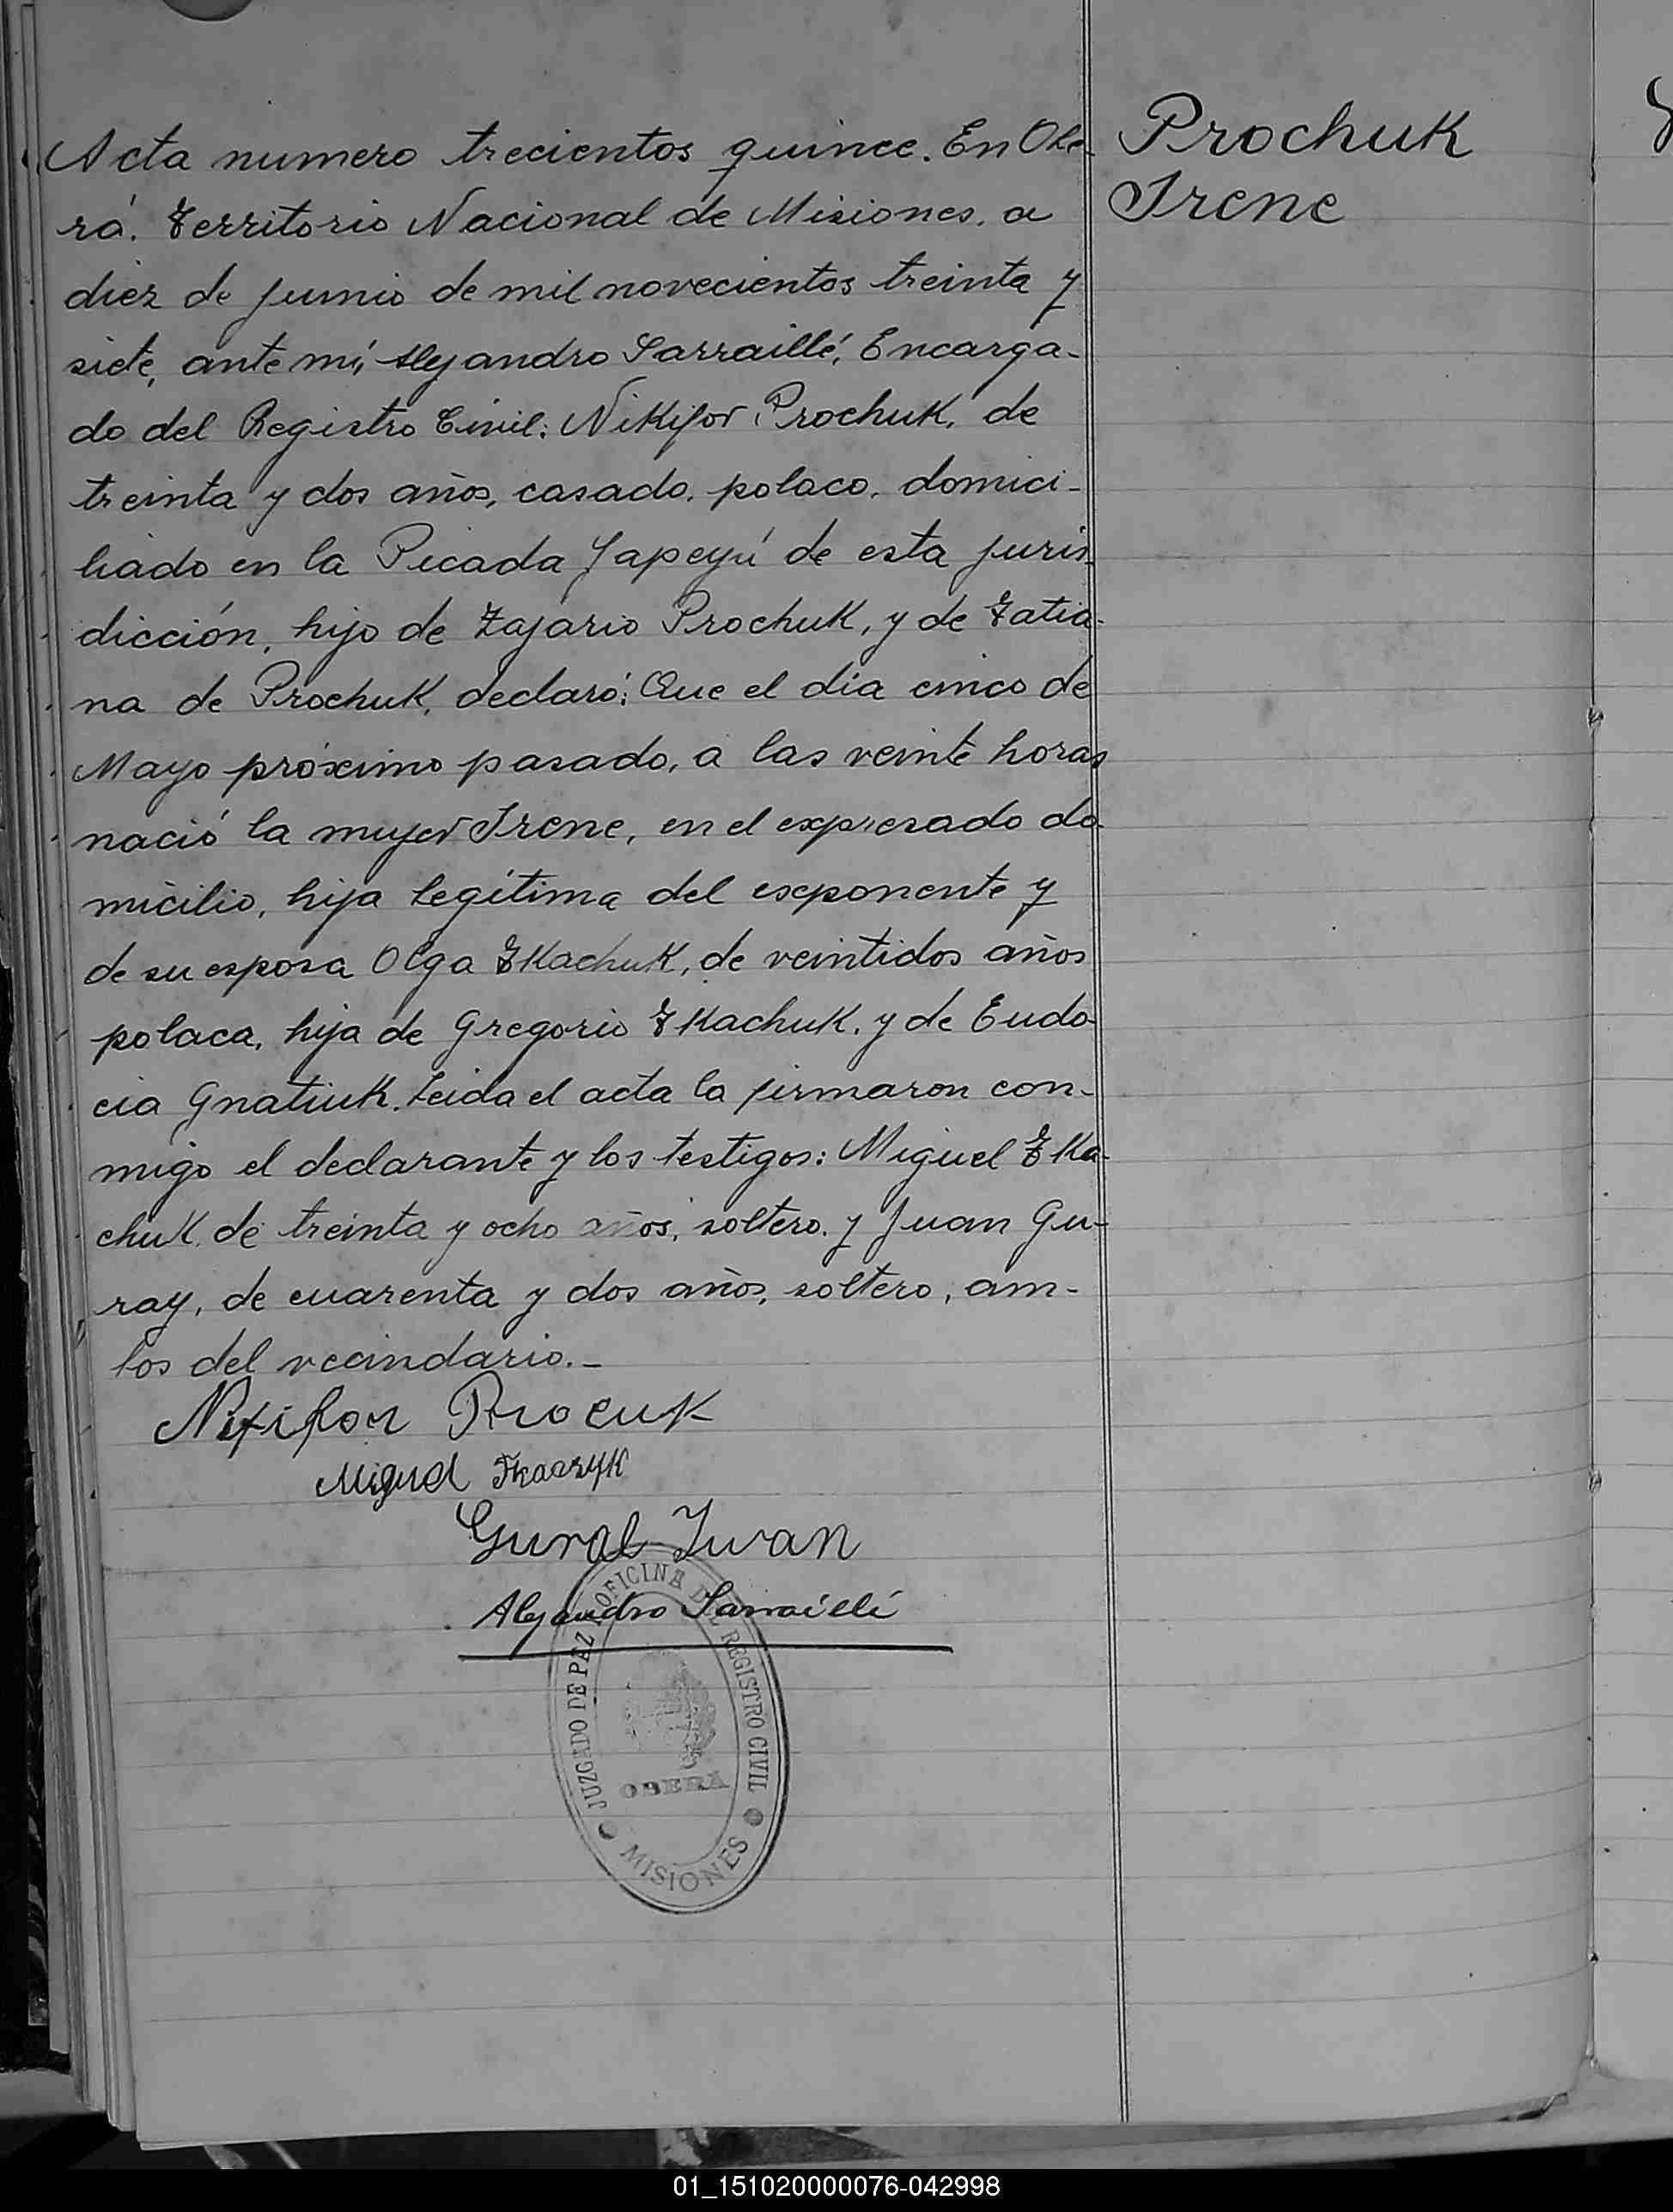 Prochuk
Irene
Acta numero trecientos quince. En Obe-
rá. Territorio Nacional de Misiones, a
diez de junio de mil novecientos treinta y
siete, ante mí, Alejandro Sarraillé, Encarga-
do del Registro Civil: Nikifor Prochuk, de
treinta y dos años, casado, polaco, domici-
liado en la Picada Yapeyú de esta juris-
dicción, hijo de Zajario Prochuk, y de Tatia-
na de Prochuk, declaró: Que el día cinco de
Mayo próximo pasado, a las veinte horas
nació la mujer Irene, en el expresado do-
micilio, hija legítima del exponente y
de su esposa Olga Tkachuk, de veintidos años
polaca, hija de Gregorio Tkachuk, y de Eudo-
cia Gnatiuk. Leida el acta la firmaron con-
migo el declarante y los testigos: Miguel Tka-
chuk, de treinta y ocho años, soltero, y Juan Gu-
ray, de cuarenta y dos años, soltero, am-
bos del vecindario.-
Nikifor Procuk
Miguel Tkaczyk
Gural Iwan
Alejandro Sarraillé
JUZGADO DE PAZ Y OFICINA DEL REGISTRO CIVIL
OBERA
MISIONES
01_151020000076-042998